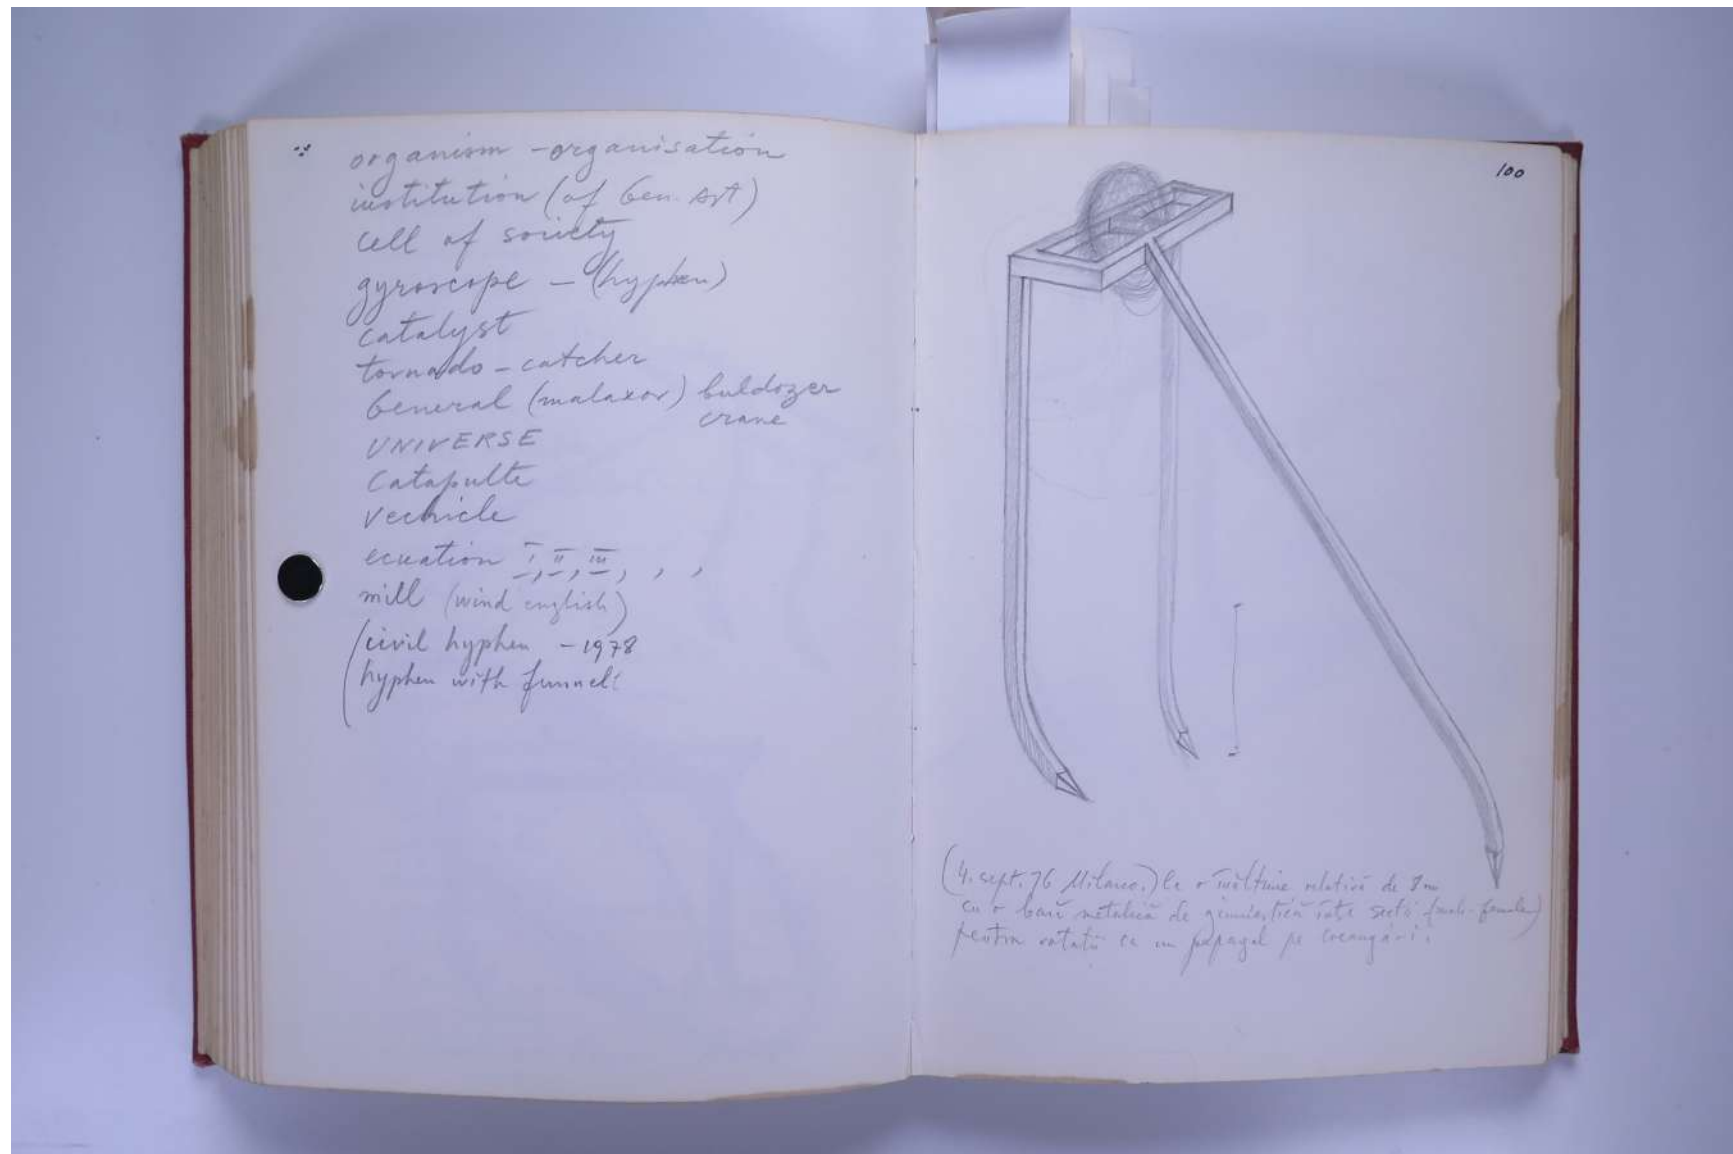 organism - organisation
institution (of Gen. Art)
cell of society
gyroscope - (hyphen)
catalyst
tornado - catcher
General (malaxor) buldozer
crane
UNIVERSE
Catapulte
Vechicle
ecuation I, II, III, , ,
mill (wind english)
(civil hyphen - 1978
hyphen with funnel:
100
(4. sept. 76 Milano.) la o înălțime relativă de 8m
cu o bară metalică de gimnastică
pentru rotații ca un papagal pe creangă